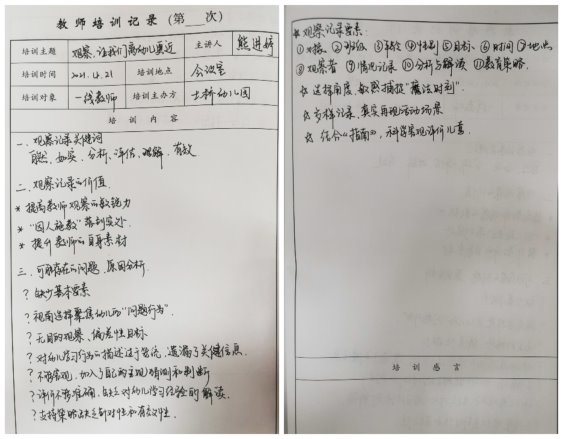 教师培训记录（第__次）
培训主题 观察，让我们离幼儿更近 主讲人 熊进婷
培训时间 2021.4.21 培训地点 会议室
培训对象 一线教师 培训主办方 士桥幼儿园
培训内容
一、观察记录关键词
自然、如实、分析、评估、理解、有效
二、观察记录的价值
* 提高教师观察的敏锐力
* "因人施教"落到实处
* 提升教师的自身素材
三、可能存在的问题、原因分析
? 缺少基本要素
? 视角选择聚焦幼儿的"问题行为"
? 无目的观察、偏差性目标
? 对幼儿学习行为的描述过于笼统，遗漏了关键信息
? 不够客观，加入了自己的主观猜测和判断
? 评价不够准确，缺乏对幼儿学习经验的解读
? 支持策略缺乏针对性和有效性
* 观察记录要素：
①对象 ②班级 ③年龄 ④性别 ⑤目标 ⑥时间 ⑦地点
⑧观察者 ⑨情况记录 ⑩分析与解读 ⑪教育策略
☆ 选择角度，敏感捕捉"魔法时刻"
☆ 多样记录，真实再现活动场景
☆ 结合《指南》，科学客观评价儿童
培训感言